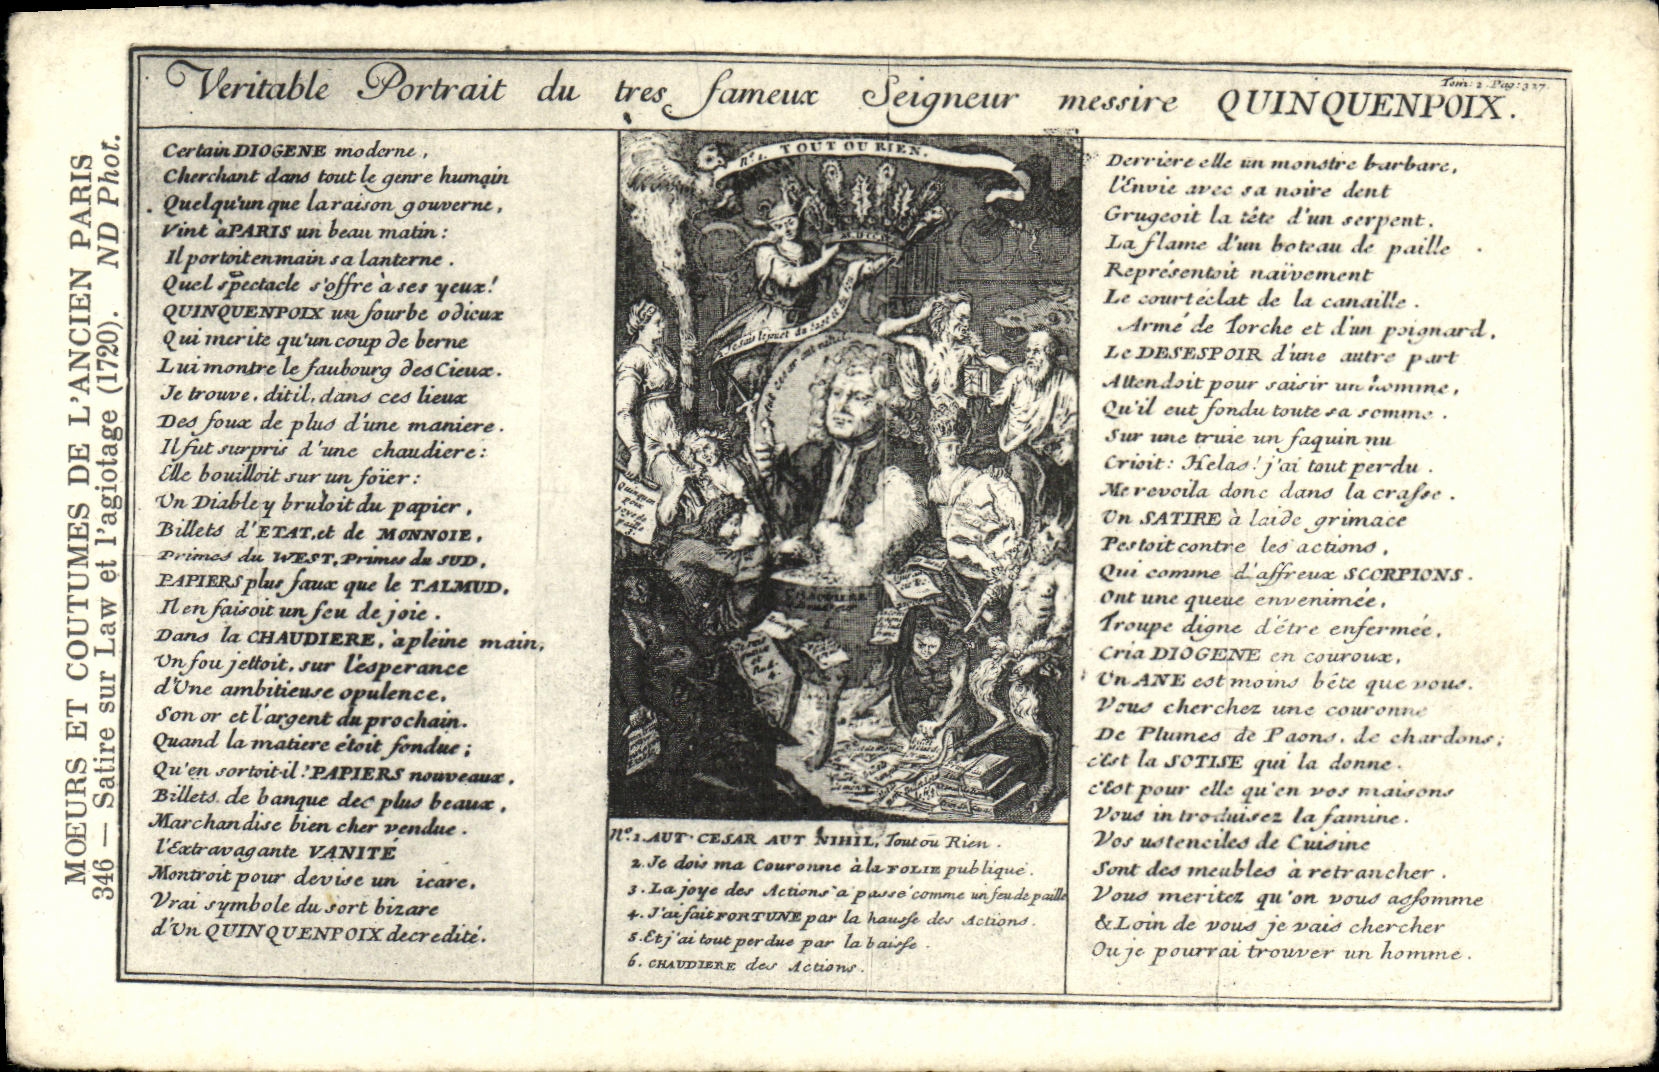 MŒURS ET COUTUMES DE L'ANCIEN PARIS
346 — Satire sur Law et l'agiotage (1720). ND Phot.
Veritable Portrait du tres fameux Seigneur messire QUINQUENPOIX.
Tom: 2. Pag: 327.
Certain DIOGENE moderne,
Cherchant dans tout le genre humain
Quelqu'un que la raison gouverne,
Vint à PARIS un beau matin:
Il portoit en main sa lanterne.
Quel spectacle s'offre à ses yeux!
QUINQUENPOIX un fourbe odieux
Qui merite qu'un coup de berne
Lui montre le faubourg des Cieux.
Je trouve, dit il, dans ces lieux
Des foux de plus d'une maniere.
Il fut surpris d'une chaudiere:
Elle bouilloit sur un foïer:
Un Diable y bruloit du papier,
Billets d'ETAT, et de MONNOIE,
Primes du WEST, Primes du SUD,
PAPIERS plus faux que le TALMUD,
Il en faisoit un feu de joie.
Dans la CHAUDIERE, à pleine main,
Un fou jettoit, sur l'esperance
d'Une ambitieuse opulence,
Son or et l'argent du prochain.
Quand la matiere étoit fondue;
Qu'en sortoit-il? PAPIERS nouveaux,
Billets de banque des plus beaux,
Marchandise bien cher vendue.
l'Extravagante VANITÉ
Montroit pour devise un icare,
Vrai symbole du sort bizare
d'Un QUINQUENPOIX decredité.
n.º 1. TOUT OU RIEN.
CHAUDIERE
Nº. 1. AUT CESAR AUT NIHIL, Tout ou Rien.
2. Je dois ma Couronne à la FOLIE publique.
3. La joye des Actions a passé comme un feu de paille
4. J'ai fait FORTUNE par la hausse des Actions.
5. Et j'ai tout perdue par la baisse.
6. CHAUDIERE des Actions.
Derriere elle un monstre barbare,
l'Envie avec sa noire dent
Grugeoit la tête d'un serpent.
La flame d'un boteau de paille
Représentoit naïvement
Le court éclat de la canaille.
Armé de Torche et d'un poignard,
Le DESESPOIR d'une autre part
Attendoit pour saisir un homme,
Qu'il eut fondu toute sa somme.
Sur une truie un faquin nu
Crioit: Helas! j'ai tout perdu.
Me revoila donc dans la crasse.
Un SATIRE à laide grimace
Pestoit contre les actions,
Qui comme d'affreux SCORPIONS.
Ont une queue envenimée,
Troupe digne d'étre enfermée,
Cria DIOGENE en couroux,
Un ANE est moins bête que vous.
Vous cherchez une couronne
De Plumes de Paons, de chardons;
c'Est la SOTISE qui la donne.
c'Est pour elle qu'en vos maisons
Vous introduisez la famine.
Vos ustenciles de Cuisine
Sont des meubles à retrancher.
Vous meritez qu'on vous assomme
& Loin de vous je vais chercher
Ou je pourrai trouver un homme.